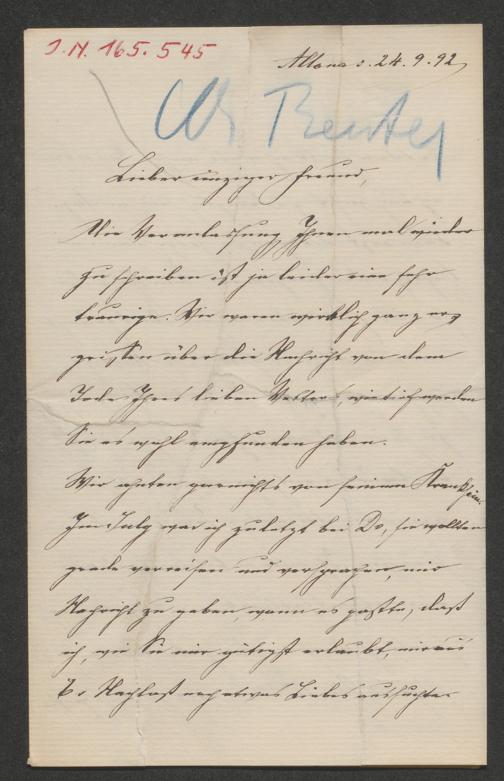 J.N. 165.545
Altona d. 24.9.92
Lieber einziger Freund,
Die Veranlassung Ihnen mal wieder
zu schreiben ist ja leider eine sehr
traurige. Wir waren wirklich ganz erg
griffen über die Nachricht von dem
Tode Ihres lieben Vetters, wie tief werden
Sie es wohl empfunden haben.
Wir ahnten garnichts von seinem Kranksein.
Im July war ich zuletzt bei Do, sie wollten
grade verreisen und versprachen, mir
Nachricht zu geben, wann es paßte, daß
ich, wie Sie mir gütigst erlaubt, mir aus
Nachlaß noch etwas Liebes aussuchte